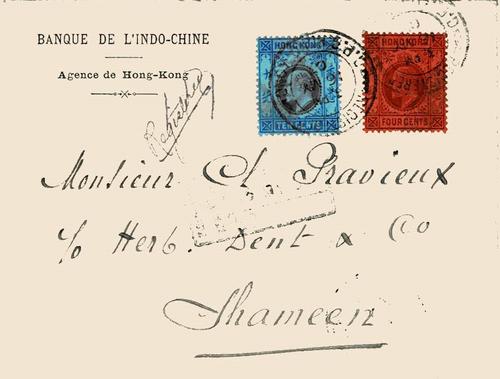 BANQUE DE L'INDO-CHINE
Agence de Hong-Kong
Registered
HONG KONG
TEN CENTS
HONG KONG
FOUR CENTS
Monsieur Ch Gravieux
c/o Herb. Dent & Co
Shaméen